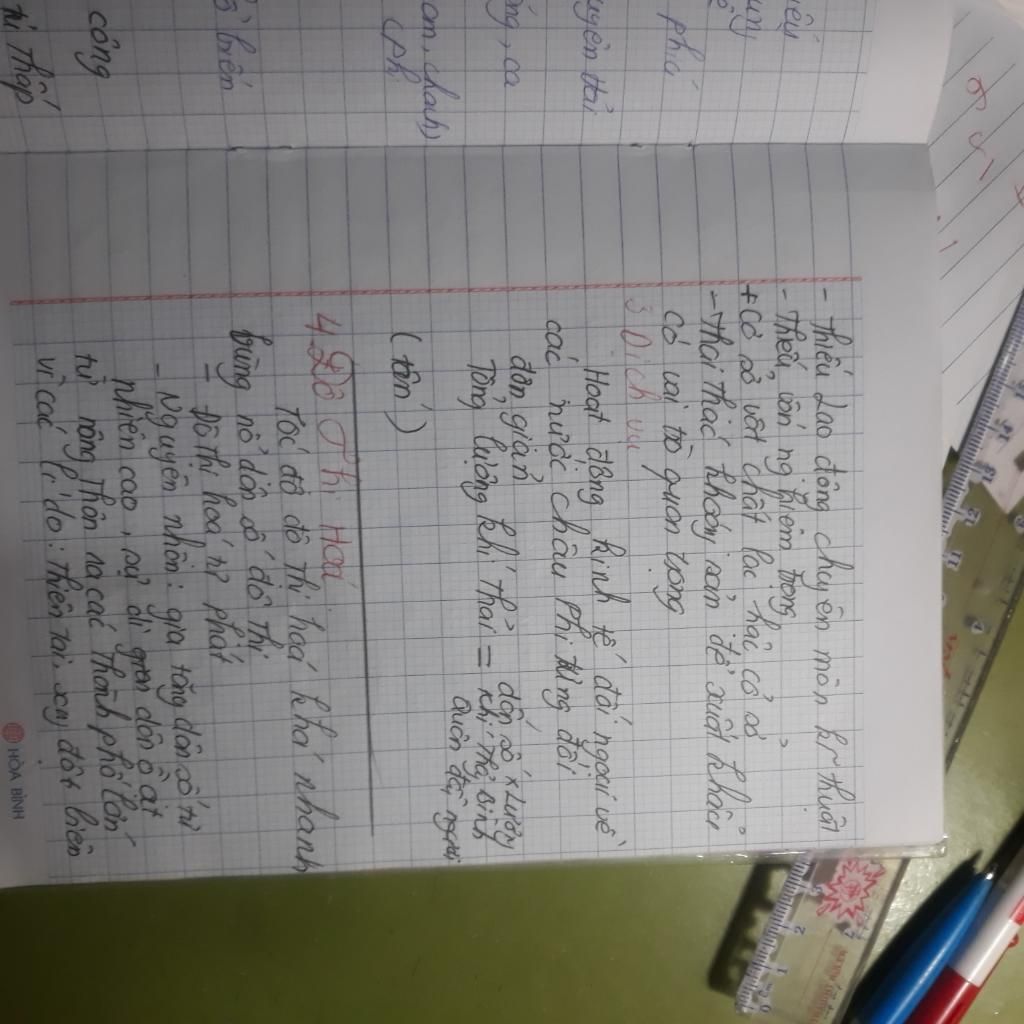 - thiếu lao động chuyên môn kĩ thuật
- thiếu vốn nghiêm trọng
+ cơ sở vật chất lạc hậu cở sở
- Khai thác khoáng sản để xuất khẩu
có vai trò quan trọng
3 Dịch vụ
Hoạt động kinh tế đối ngoại về
các nước Châu Phi tương đối
đơn giản
Tổng lượng khí thải = dân số x lượng
khí thải bình
quân đầu người
(tấn)
4. Đô Thị Hoá
Tốc độ đô thị hoá khá nhanh
bùng nổ dân số đô thị
= Đô thị hoá tự phát
- Nguyên nhân: gia tăng dân số tự
nhiên cao, sự di dân ồ ạt
từ nông thôn ra các thành phố lớn
vì các lí do: thiên tai, xung đột biên
HÒA BÌNH
phú
ca
cam, chanh)
cph
biến
công
thấp